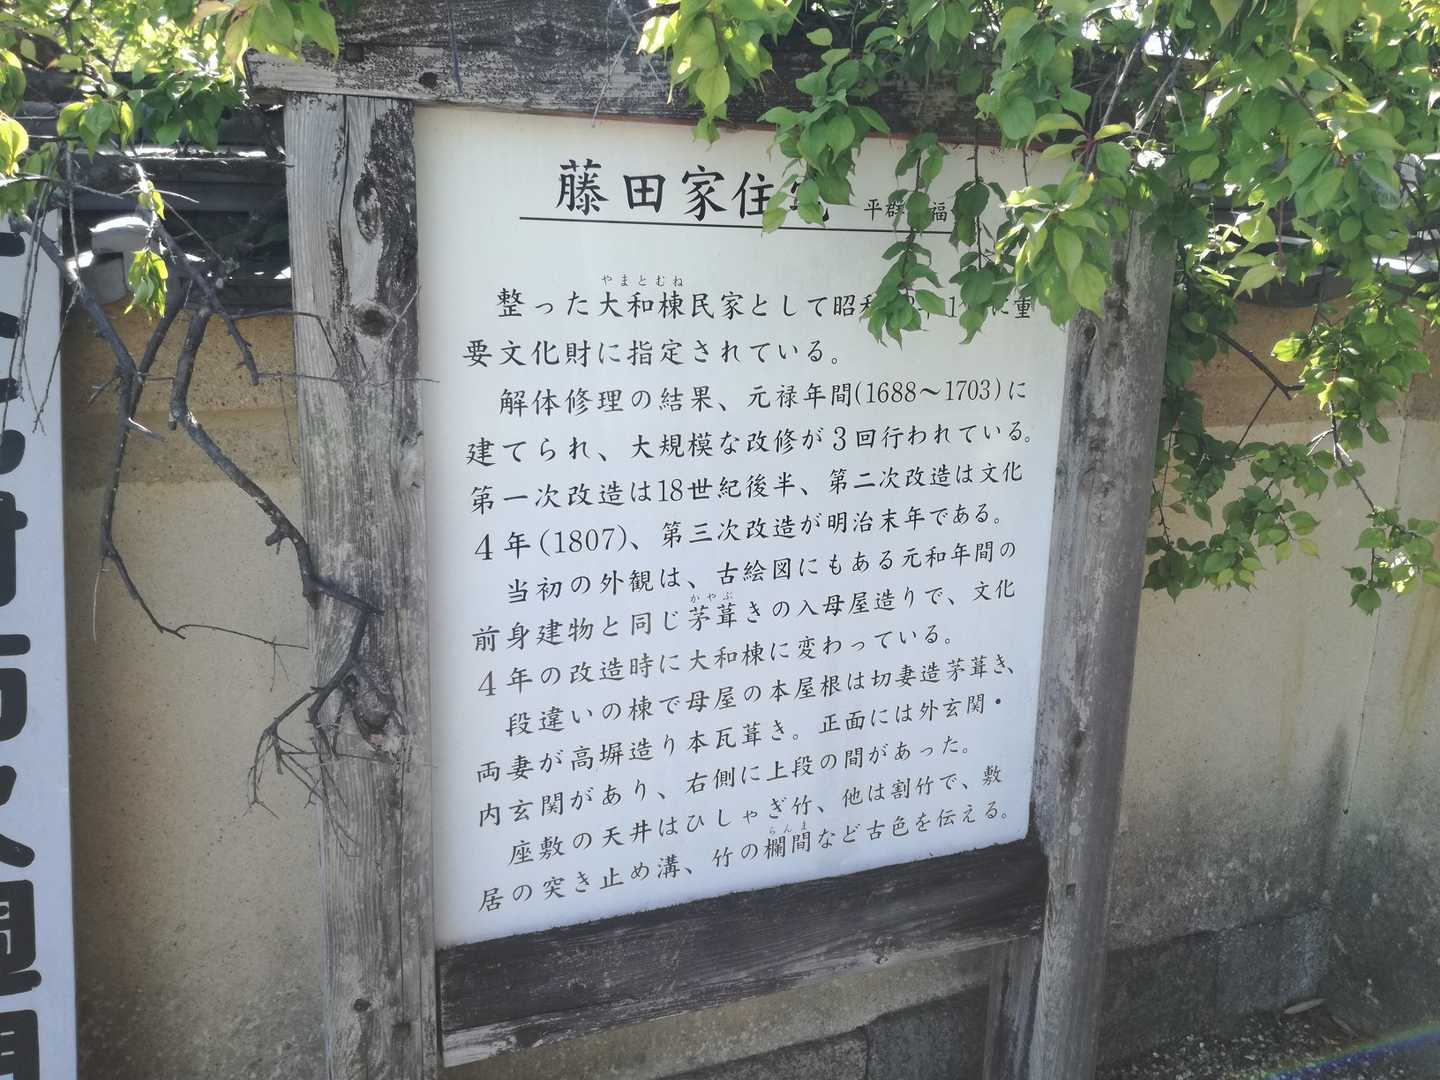 藤田家住
平群 福
やまとむね
整った大和棟民家として昭 に重
要文化財に指定されている。
解体修理の結果、元禄年間(1688〜1703)に
建てられ、大規模な改修が3回行われている。
第一次改造は18世紀後半、第二次改造は文化
4年(1807)、第三次改造が明治末年である。
当初の外観は、古絵図にもある元和年間の
かやぶ
前身建物と同じ茅葺きの入母屋造りで、文化
4年の改造時に大和棟に変わっている。
段違いの棟で母屋の本屋根は切妻造茅葺き、
両妻が高塀造り本瓦葺き。正面には外玄関・
内玄関があり、右側に上段の間があった。
座敷の天井はひしゃぎ竹、他は割竹で、敷
らんま
居の突き止め溝、竹の欄間など古色を伝える。